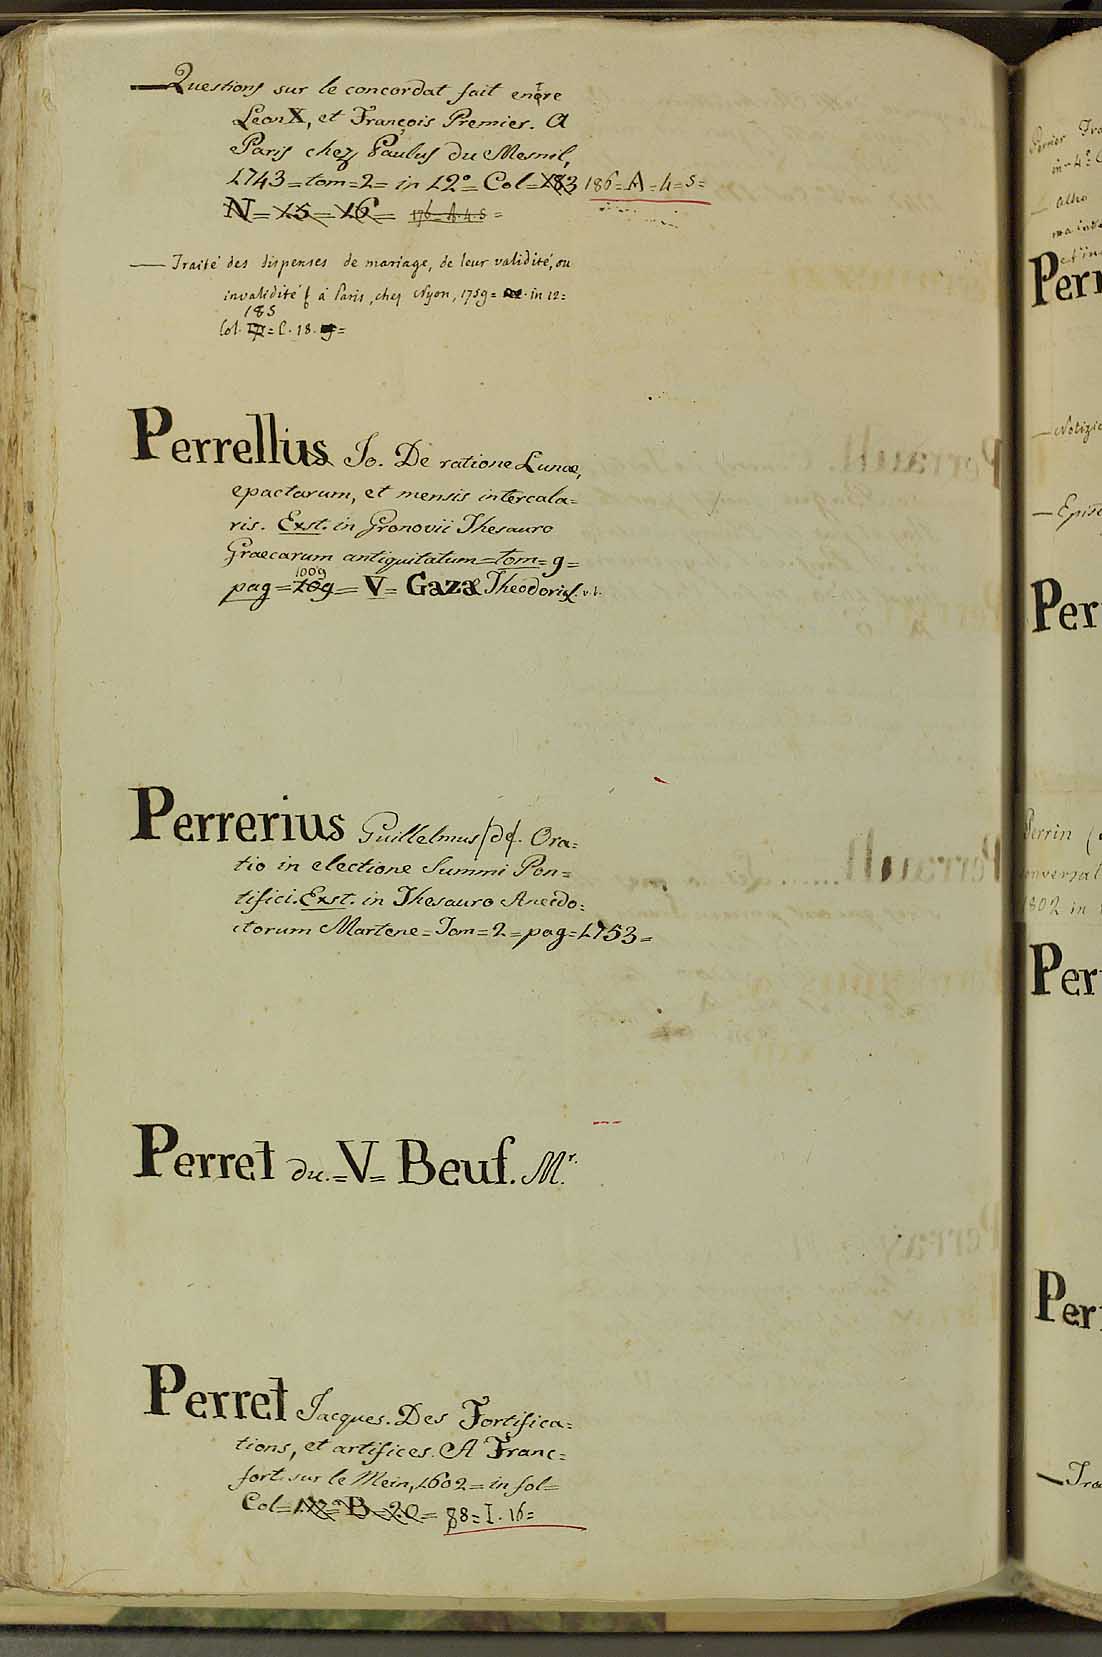 — Questions sur le concordat fait entre
Leon X, et François Premier. A
Paris chez Paulus du Mesnil,
1743=tom=2=in 12º=Col=183 186=A=4=5=
N=15=16= 176=A.4.5=
— Traité des dispenses de mariage, de leur validité, ou
invalidité à Paris, chez Nyon, 1759= in 12=
185
Col. =C.18. =
Perrellius Jo. De ratione Lunae,
epactarum, et mensis intercala=
ris. Exst. in Gronovii Thesauro
Graecarum antiquitatum=tom=9=
1009
pag=109=V=Gazae Theodori
Perrerius Guillelmus de. Ora=
tio in electione Summi Pon=
tifici. Exst. in Thesauro Anecdo=
ctorum Martene=Tom=2=pag=1753=
Perret du.=V=Beuf. Mr.
Perret Jacques. Des Fortifica=
tions, et artifices. A Franc=
fort sur le Mein, 1602=in fol=
Col= =B=20= 88=I.16=
Perrier
in-4º
— alho
Perr
— Notizie
— Episto
Per
Perrin
1802 in
Per
Per
— Tra